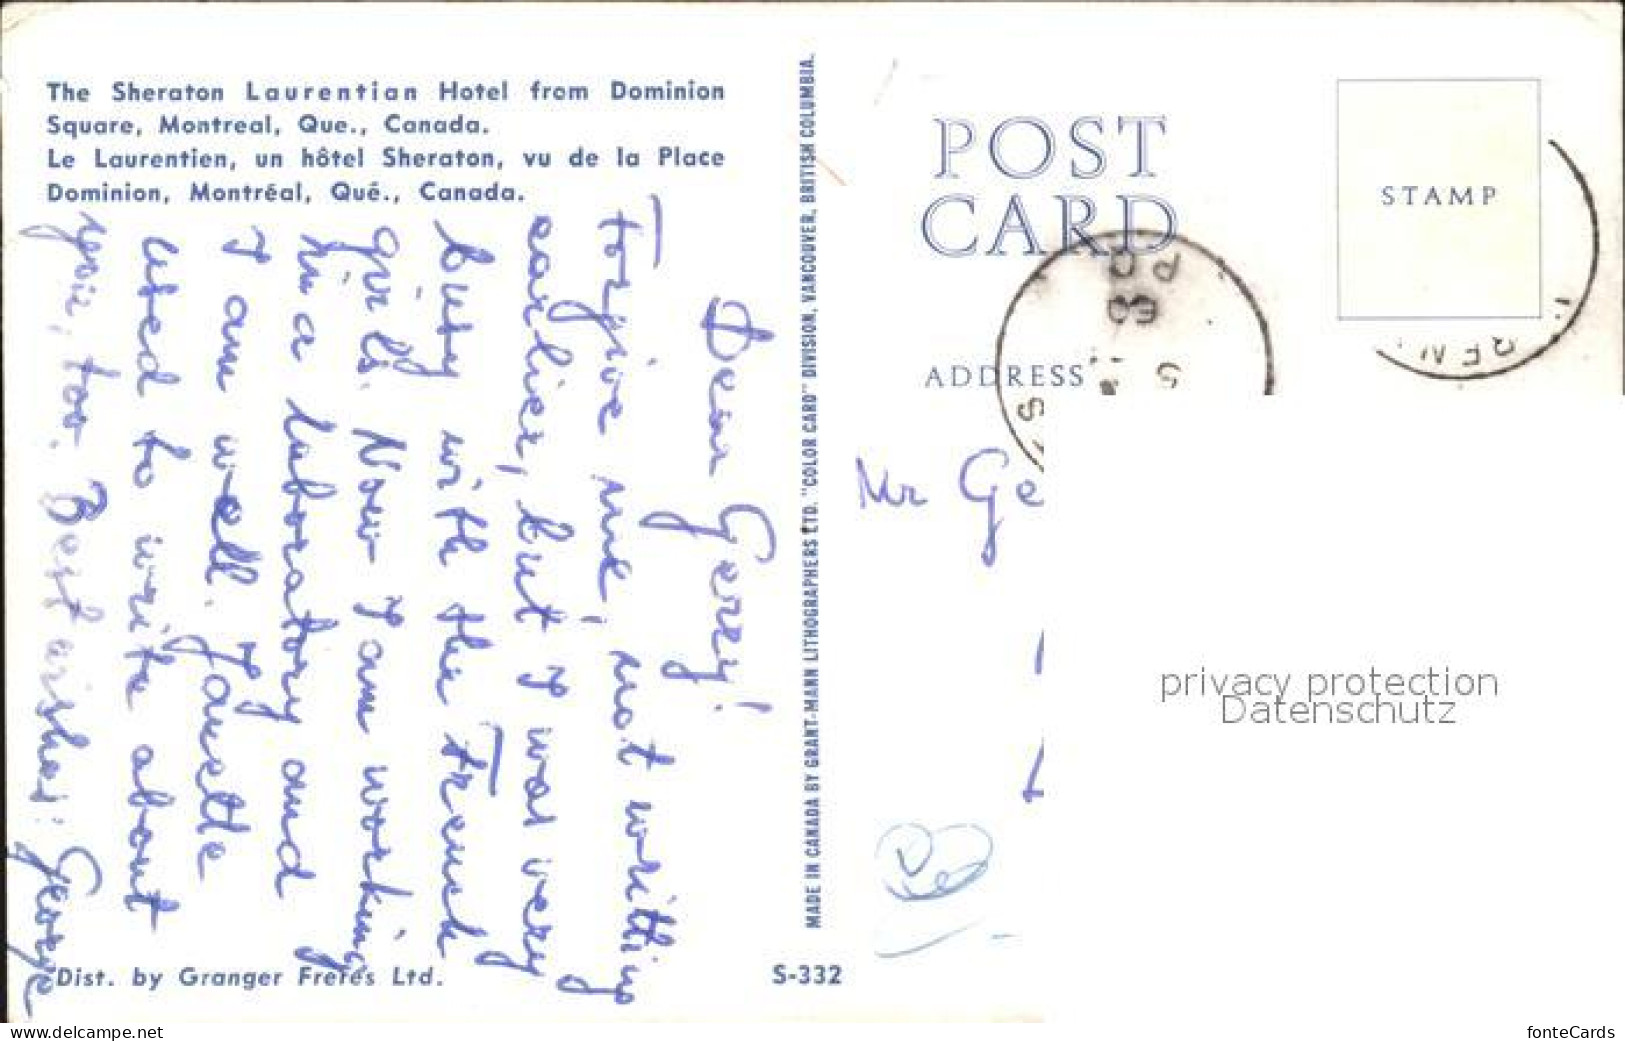 The Sheraton Laurentian Hotel from Dominion
Square, Montreal, Que., Canada.
Le Laurentien, un hôtel Sheraton, vu de la Place
Dominion, Montréal, Qué., Canada.
Dear Gerry!
Forgive me, not writting
earlier, but I was very
busy with the French
girls. Now I am working
in a laboratory and
I am well. Janette
used to write about
you, too. Best wishes: George
Dist. by Granger Freres Ltd.
S-332
MADE IN CANADA BY GRANT-MANN LITHOGRAPHERS LTD. "COLOR CARD" DIVISION, VANCOUVER, BRITISH COLUMBIA.
POST
CARD
STAMP
ADDRESS
PQ
Mr Ge
privacy protection
Datenschutz
www.delcampe.net
fonteCards